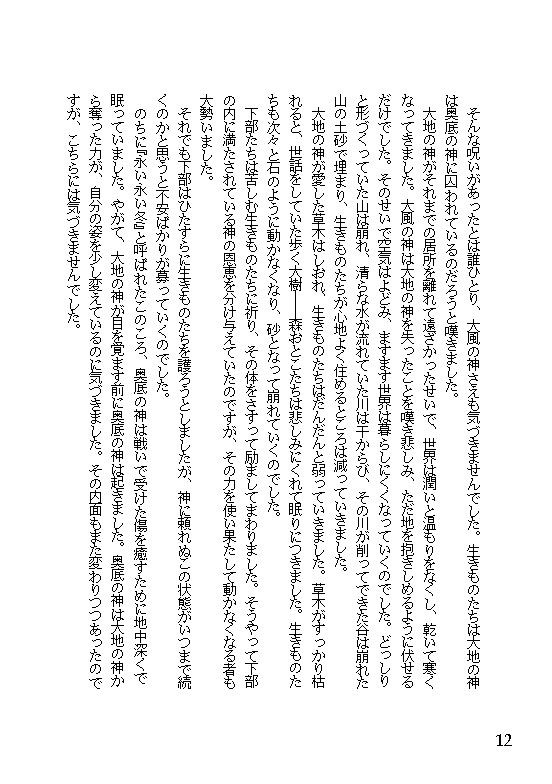 そんな呪いがあったとは誰ひとり、大風の神さえも気づきませんでした。生きものたちは大地の神
は奥底の神に囚われているのだろうと嘆きました。
大地の神がそれまでの居所を離れて遠ざかったせいで、世界は潤いと温もりをなくし、乾いて寒く
なってきました。大風の神は大地の神を失ったことを嘆き悲しみ、ただ地を抱きしめるように伏せる
だけでした。そのせいで空気はよどみ、ますます世界は暮らしにくくなっていくのでした。どっしり
と形づくっていた山は崩れ、清らな水が流れていた川は干からび、その川が削ってできた谷は崩れた
山の土砂で埋まり、生きものたちが心地よく住めるところは減っていきました。
大地の神が愛した草木はしおれ、生きものたちはだんだんと弱っていきました。草木がすっかり枯
れると、世話をしていた歩く大樹――森おとこたちは悲しみにくれて眠りにつきました。生きものた
ちも次々と石のように動かなくなり、砂となって崩れていくのでした。
下部たちは苦しむ生きものたちに祈り、その体をさすって励ましてまわりました。そうやって下部
の内に満たされている神の恩恵を分け与えていたのですが、その力を使い果たして動かなくなる者も
大勢いました。
それでも下部はひたすらに生きものたちを護ろうとしましたが、神に頼れぬこの状態がいつまで続
くのかと思うと不安ばかりが募っていくのでした。
のちに『永い永い冬』と呼ばれたこのころ、奥底の神は戦いで受けた傷を癒すために地中深くで
眠っていました。やがて、大地の神が目を覚ます前に奥底の神は起きました。奥底の神は大地の神か
ら奪った力が、自分の姿を少し変えているのに気づきました。その内面もまた変わりつつあったので
すが、こちらには気づきませんでした。
12